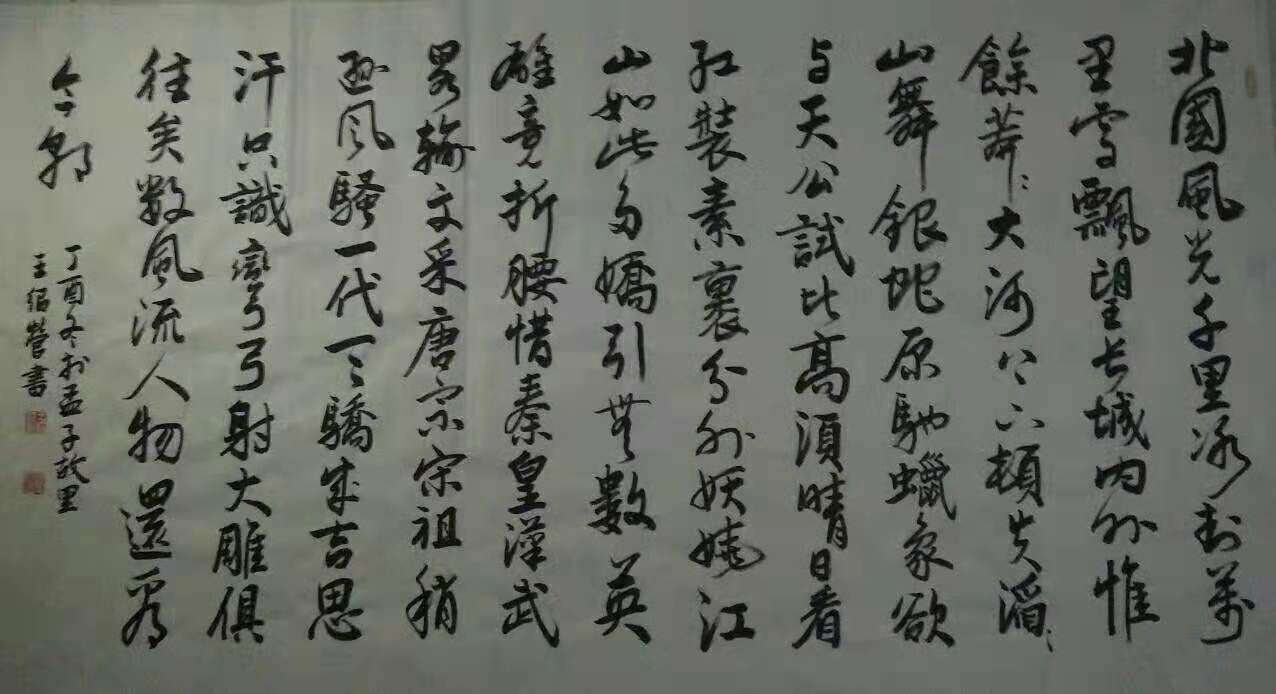 北國風光千里冰封萬
里雪飄望長城内外惟
餘莽〻大河上下頓失滔〻
山舞銀蛇原馳蠟象欲
与天公試比高須晴日看
紅裝素裹分外妖嬈江
山如此多嬌引無數英
雄竟折腰惜秦皇漢武
畧輸文采唐宗宋祖稍
遜風騷一代天驕成吉思
汗只識彎弓射大雕俱
往矣數風流人物還看
今朝
丁酉冬於孟子故里
王紹營書